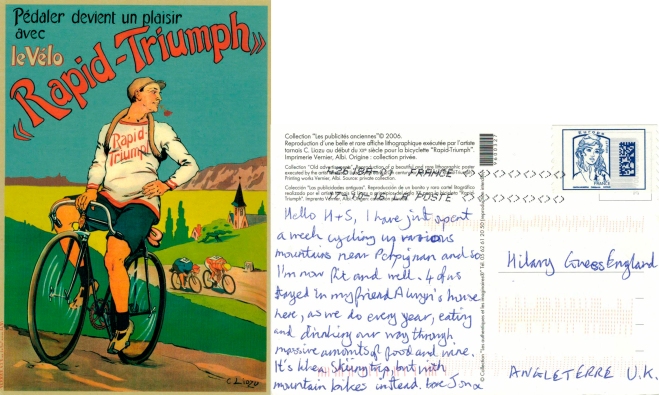 Pédaler devient un plaisir
avec
le Vélo
"Rapid-Triumph"
Rapid-
Triumph
C. Liozu
Collection "Les publicités anciennes" © 2006.
Reproduction d'une belle et rare affiche lithographique exécutée par l'artiste
tarnais C. Liozu au début du XXe siècle pour la bicyclette "Rapid-Triumph".
Imprimerie Vernier, Albi. Origine : collection privée.
Collection "Old advertisements". Reproduction of a beautiful and rare lithographic poster
executed by the artist
Printing works Vernier, Albi. Source: private collection.
Colección "Las publicidades antiguas". Reproducción de un bonito y raro cartel litográfico
"Rapid-Triumph". Imprenta Vernier, Albi. Origen: colección privada.
FRANCE
LA POSTE
Europe
FRANCE
Hello H+S, I have just spent
a week cycling up various
mountains near Perpignan and so
I'm now fit and well. 4 of us
stayed in my friend Alwyn's house
here, as we do every year, eating
and drinking our way through
massive amounts of food and wine.
It's like a skiing trip, but with
mountain bikes instead. love
© Collection "Les authentiques et les imaginaires"
Hilary Guess England
ANGLETERRE U.K.